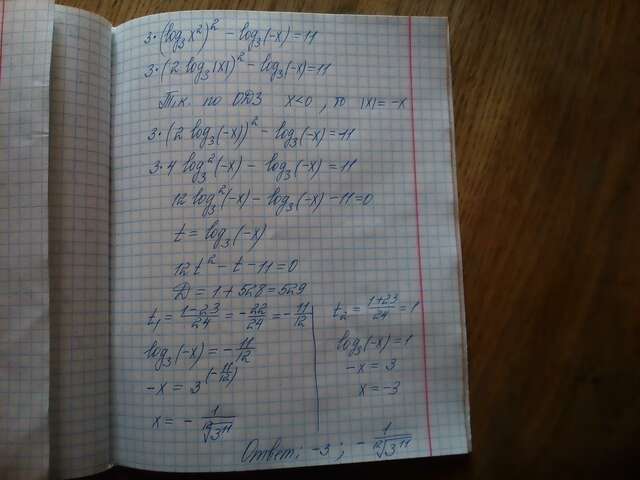 3·(log₃x²)² - log₃(-x) = 11
3·(2 log₃|x|)² - log₃(-x) = 11
Т.к. по ОДЗ x<0, то |x| = -x
3·(2 log₃(-x))² - log₃(-x) = 11
3·4 log₃²(-x) - log₃(-x) = 11
12 log₃²(-x) - log₃(-x) - 11 = 0
t = log₃(-x)
12t² - t - 11 = 0
D = 1 + 528 = 529
t₁ = (1-23)/24 = -22/24 = -11/12
log₃(-x) = -11/12
-x = 3^(-11/12)
x = - 1/¹²√3¹¹
t₂ = (1+23)/24 = 1
log₃(-x) = 1
-x = 3
x = -3
Ответ: -3; - 1/¹²√3¹¹